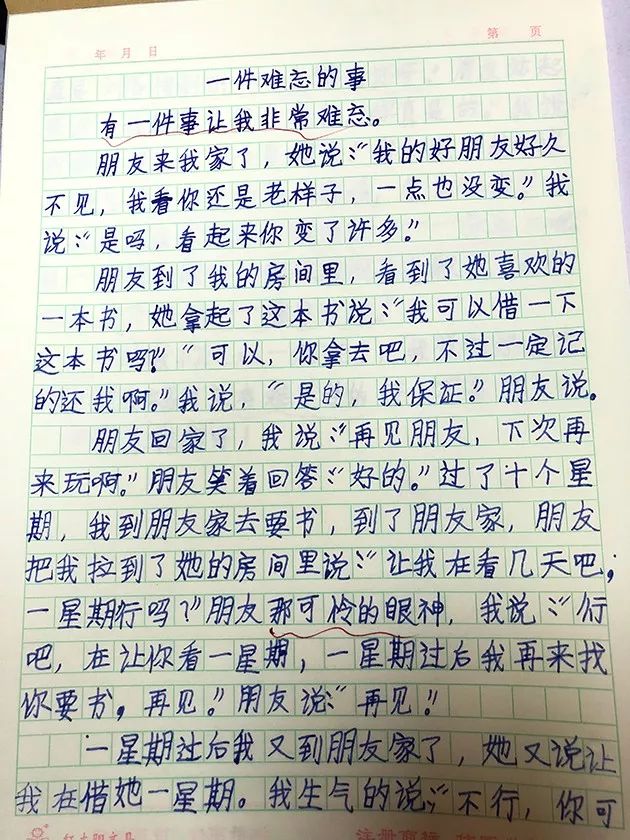 年 月 日
第 页
一件难忘的事
有一件事让我非常难忘。
朋友来我家了，她说:“我的好朋友好久
不见，我看你还是老样子，一点也没变。”我
说:“是吗，看起来你变了许多。”
朋友到了我的房间里，看到了她喜欢的
一本书，她拿起了这本书说:“我可以借一下
这本书吗?”“可以，你拿去吧，不过一定记
的还我啊。”我说，“是的，我保证。”朋友说。
朋友回家了，我说:“再见朋友，下次再
来玩啊。”朋友笑着回答:“好的。”过了十个星
期，我到朋友家去要书，到了朋友家，朋友
把我拉到了她的房间里说:“让我在看几天吧，
一星期行吗?”朋友那可怜的眼神，我说:“行
吧，在让你看一星期，一星期过后我再来找
你要书，再见。”朋友说:“再见!”
一星期过后我又到朋友家了，她又说让
我在借她一星期。我生气的说:“不行，你可